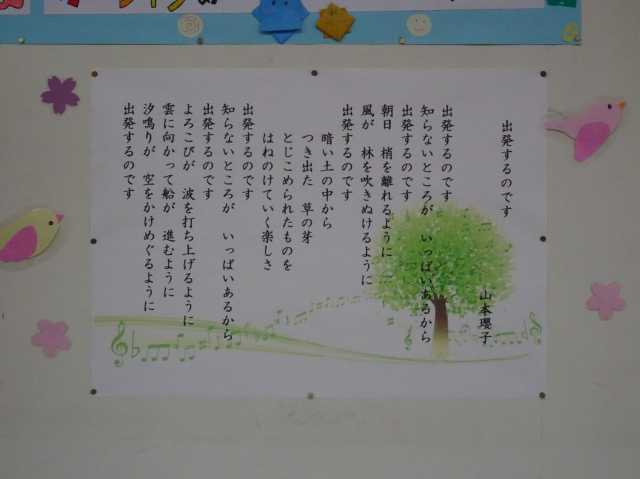 出発するのです
山本瓔子
出発するのです
知らないところが　いっぱいあるから
出発するのです
朝日　梢を離れるように
風が　林を吹きぬけるように
出発するのです
暗い土の中から
つき出た　草の芽
とじこめられたものを
はねのけていく楽しさ
出発するのです
知らないところが　いっぱいあるから
出発するのです
よろこびが　波を打ち上げるように
雲に向かって船が　進むように
汐鳴りが　空をかけめぐるように
出発するのです